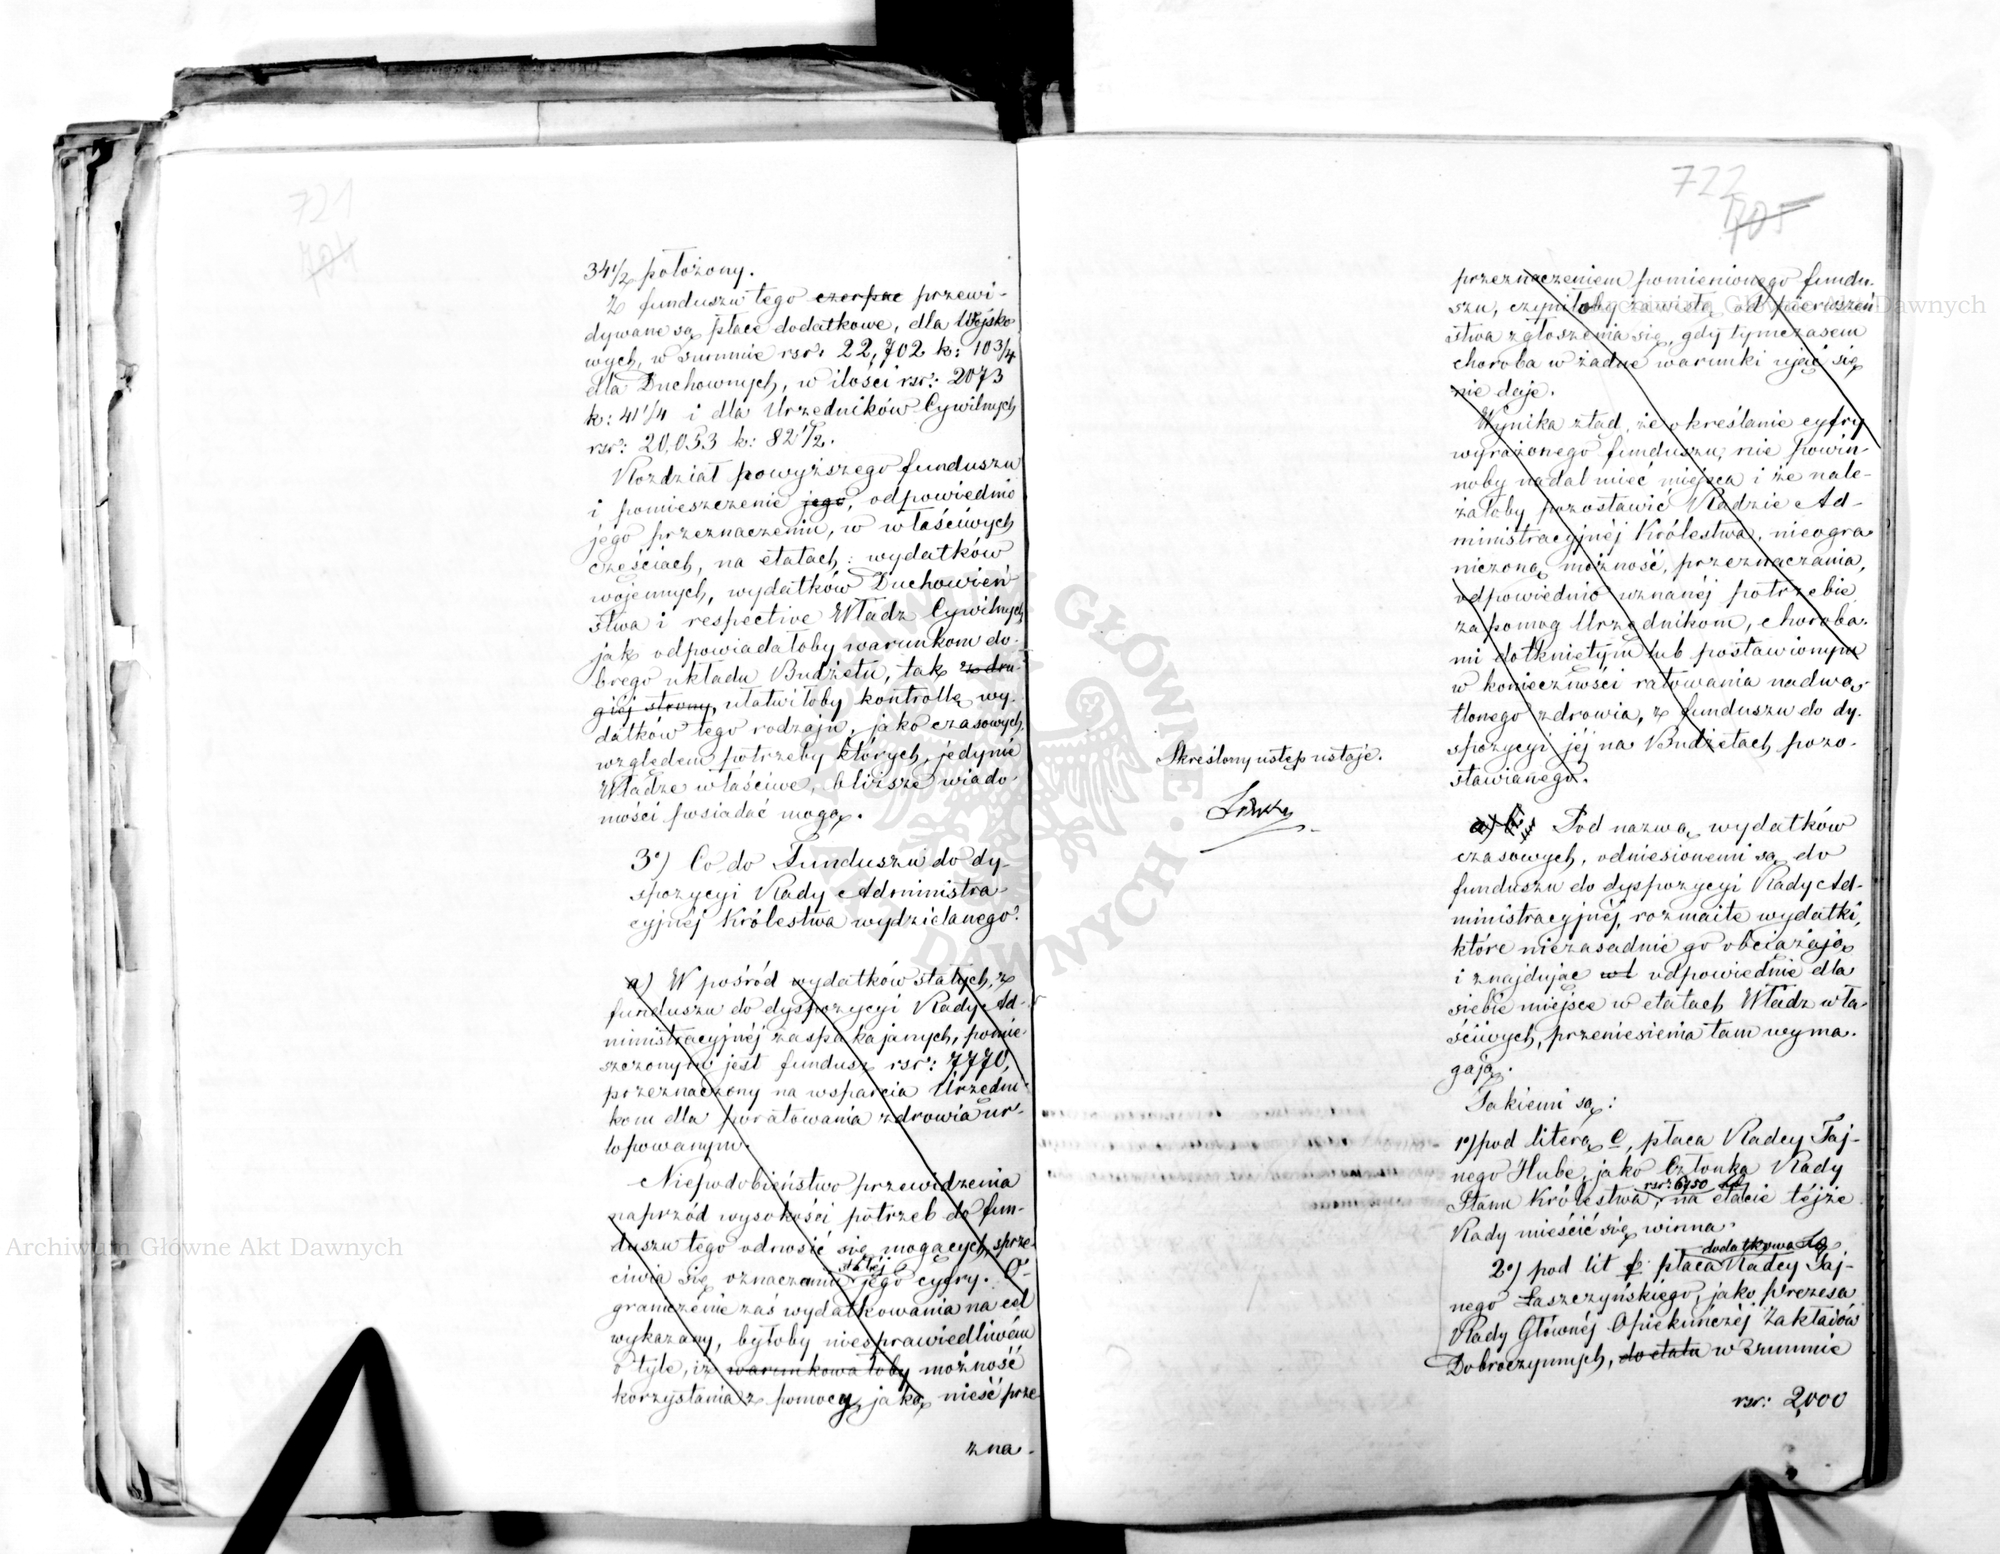 721
704
34 1/2 położony.
Z funduszu tego czerpac przewi-
dywane są płace dodatkowe, dla Wojsko
wych, w summie rsr: 22,702 k: 10 3/4
dla Duchownych, w ilości rsr: 2073
k: 41 1/4 i dla Urzędników Cywilnych
rsr: 20,053 k: 82 1/2.
Rozdział powyższego funduszu
i pomieszczenie jego, odpowiednio
jego przeznaczeniu, w właściwych
częściach, na etatach: wydatków
wojennych, wydatków Duchowień-
stwa i respective Władz Cywilnych
jak odpowiadałoby warunkom do-
brego układu Budżetu, tak z dru-
giéj strony, ułatwiłoby kontrollę wy-
datków tego rodzaju, jako czasowych,
względem potrzeby których, jedynie
Władze właściwe, bliższe wiado-
mości posiadać mogą.
3o) Co do Funduszu do dy-
spozycyi Rady Administra-
cyjnéj Królestwa wydzielanego.
a) W pośród wydatków stałych, z
funduszu do dyspozycyi Rady Ad-
ministracyjnéj zaspakajanych, pomie-
szczonym jest fundusz rsr: 7770,
przeznaczony na wsparcia Urzędni-
kom dla poratowania zdrowia ur-
lopowanym.
Niepodobieństwo przewidzenia
naprzód wysokości potrzeb do fun-
duszu tego odnosić się mogących, sprze-
stałéj
ciwia się oznaczeniu jego cyfry. O-
graniczenie zaś wydatkowania na cel
wykazany, byłoby niesprawiedliwém
o tyle, iż warunkowałoby możność
korzystania z pomocy, jaką nieść prze
zna-
722
705
przeznaczeniem pomienionego fundu-
szu, czyniłoby zawisłą od pierwszeń
stwa zgłoszenia się, gdy tymczasem
choroba w żadne warunki ująć się
nie daje.
Wynika ztąd, że określanie cyfry
wyrażonego funduszu, nie powin-
noby nadal mieć miejsca i że nale-
żałoby pozostawić Radzie Ad-
ministracyjnéj Królestwa, nieogra
niczoną możność, przeznaczania,
odpowiednio uznanéj potrzebie
zapomog Urzędnikom, choroba-
mi dotkniętym lub postawionym
w konieczności ratowania nadwą-
tlonego zdrowia, z funduszu do dy-
spozycyi jéj na Budżetach pozo-
stawianego.
Skreślony ustęp ustaje.
a) Pod nazwą wydatków
czasowych, odniesionemi są do
funduszu do dyspozycyi Rady Ad-
ministracyjnéj, rozmaite wydatki,
które niezasadnie go obciążają
i znajdując wł odpowiednie dla
siebie miejsce w etatach Władz wła-
ściwych, przeniesienia tam wyma-
gają.
Takiemi są:
1o) pod literą e, płaca Radcy Taj-
nego Hube, jako Członka Rady
rsr: 6750
Stanu Królestwa, na etacie téjże
Rady mieścić się winna.
dodatkowa
2o) pod lit f. płaca Radcy Taj-
nego Łaszczyńskiego, jako Prezesa
Rady Głównéj Opiekuńczéj Zakładów
Dobroczynnych, do etatu w summie
rsr: 2,000
Archiwum Główne Akt Dawnych
Archiwum Główne Akt Dawnych
ARCHIWUM GŁÓWNE AKT DAWNYCH